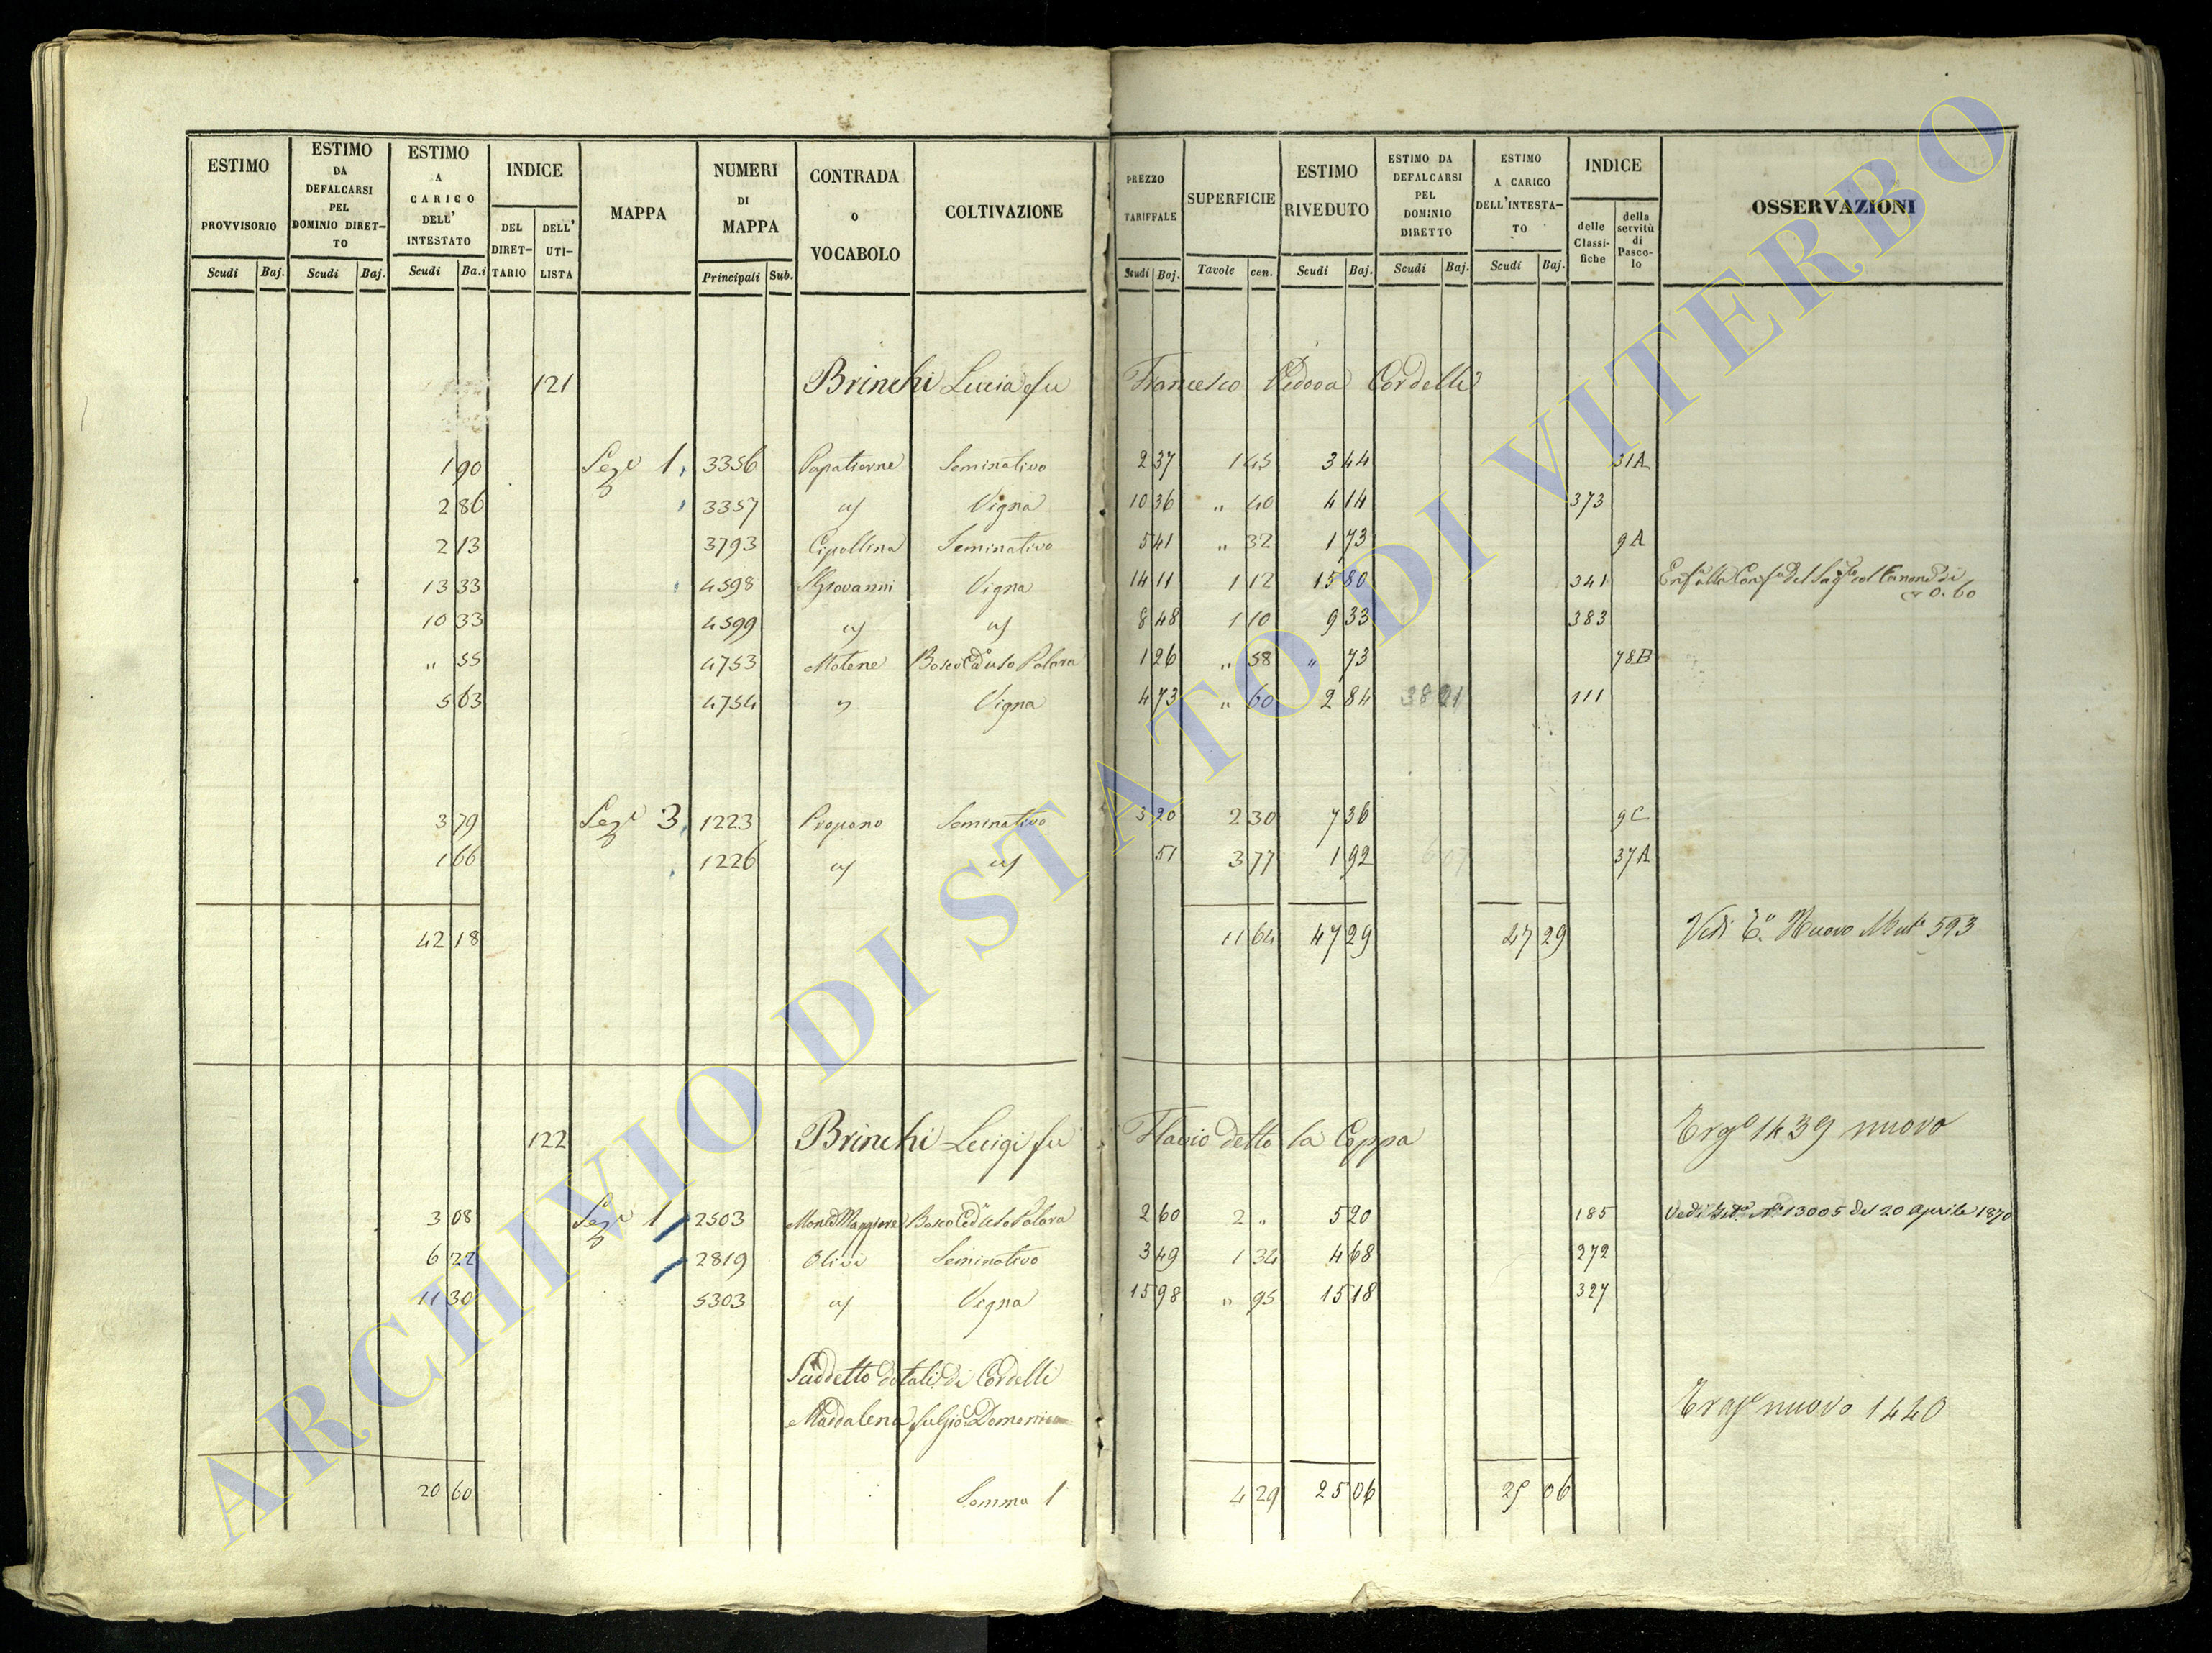 ESTIMO PROVVISORIO Scudi Baj.
ESTIMO DA DEFALCARSI PEL DOMINIO DIRETTO Scudi Baj.
ESTIMO A CARICO DELL' INTESTATO Scudi Ba.i
INDICE DEL DIRETTARIO DELL' UTILISTA
MAPPA
NUMERI DI MAPPA Principali Sub.
CONTRADA o VOCABOLO
COLTIVAZIONE
PREZZO TARIFFALE Scudi Baj.
SUPERFICIE Tavole cen.
ESTIMO RIVEDUTO Scudi Baj.
ESTIMO DA DEFALCARSI PEL DOMINIO DIRETTO Scudi Baj.
ESTIMO A CARICO DELL'INTESTATO Scudi Baj.
INDICE delle Classifiche della servitù di Pascolo
OSSERVAZIONI
121 Brinchi Lucia fu Francesco Vedova Cordelli
1 90 Seze 1 3356 Seminativo 2 37 1 45 3 44 31A
2 86 3357 Vigna 10 36 " 40 4 14 373
2 13 3793 Cipollina Seminativo 5 41 " 32 1 73 9A
13 33 4598 S Giovanni Vigna 14 11 1 12 15 80 341
0.60
10 33 4599 8 48 1 10 9 33 383
" 55 4753 Bosco Ceduo 1 26 " 58 " 73 78B
5 63 4754 " Vigna 4 73 " 60 2 84 38 21 111
3 79 Seze 3 1223 Propano Seminativo 3 20 2 30 7 36 9C
1 66 1226 51 3 77 1 92 37A
42 18 11 64 47 29 47 29 Vedi Nuovo 593
122 Brinchi Luigi fu Flavio detto la Coppa 1439 nuovo
3 08 Seze 1 2503 Monte Maggiore Bosco 2 60 2 " 5 20 185 Vedi No 13005 del 20 aprile 1870
6 22 2819 Olivi Seminativo 3 49 1 34 4 68 272
11 30 5303 Vigna 15 98 " 95 15 18 327
Suddetto dotali di Cordelli
Maddalena fu Gio Domenico nuovo 1440
20 60 Somma 1 4 29 25 06 25 06
ARCHIVIO DI STATO DI VITERBO